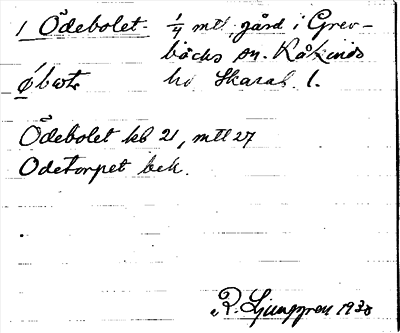 1 Ödebolet. 1/4 mtl gård i Grev-
bäcks sn. Kåkinds
øbωtε hd Skarab. l.
Ödebolet kb 21, mtl 27
Odetorpet bek.
R. Ljunggren 1930